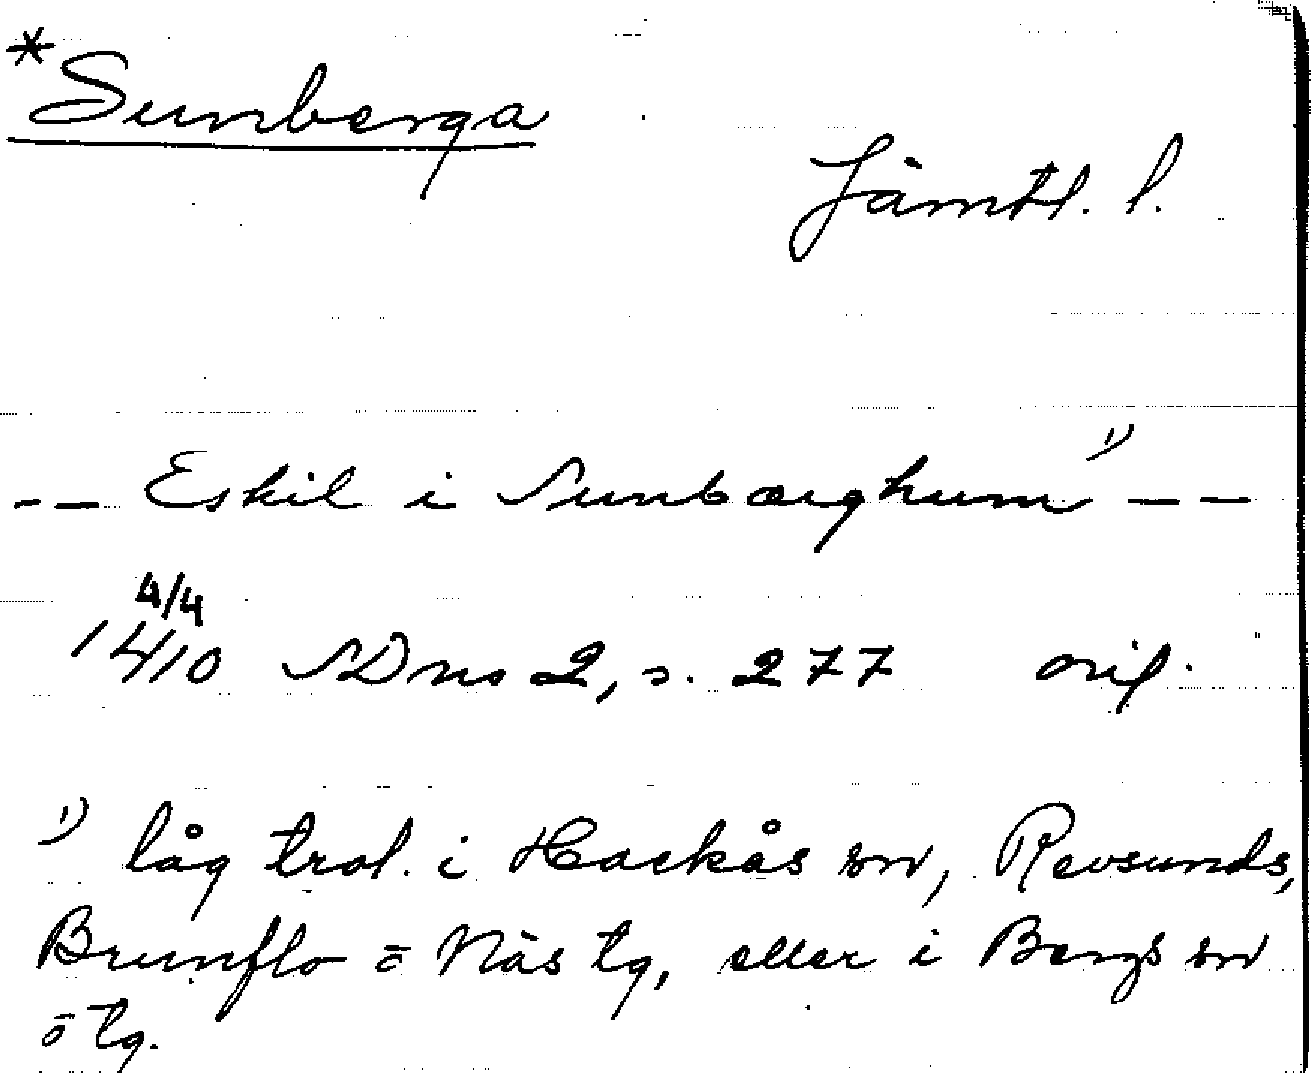 *Sunberga
Jämtl. l.
-- Eskil i Sunbærghum 1) --
4/4
1410 SDns 2, s. 277 orig.
1) låg trol. i Hackås sn, Revsunds,
Brunflo o Näs tg, eller i Bergs sn
o tg.